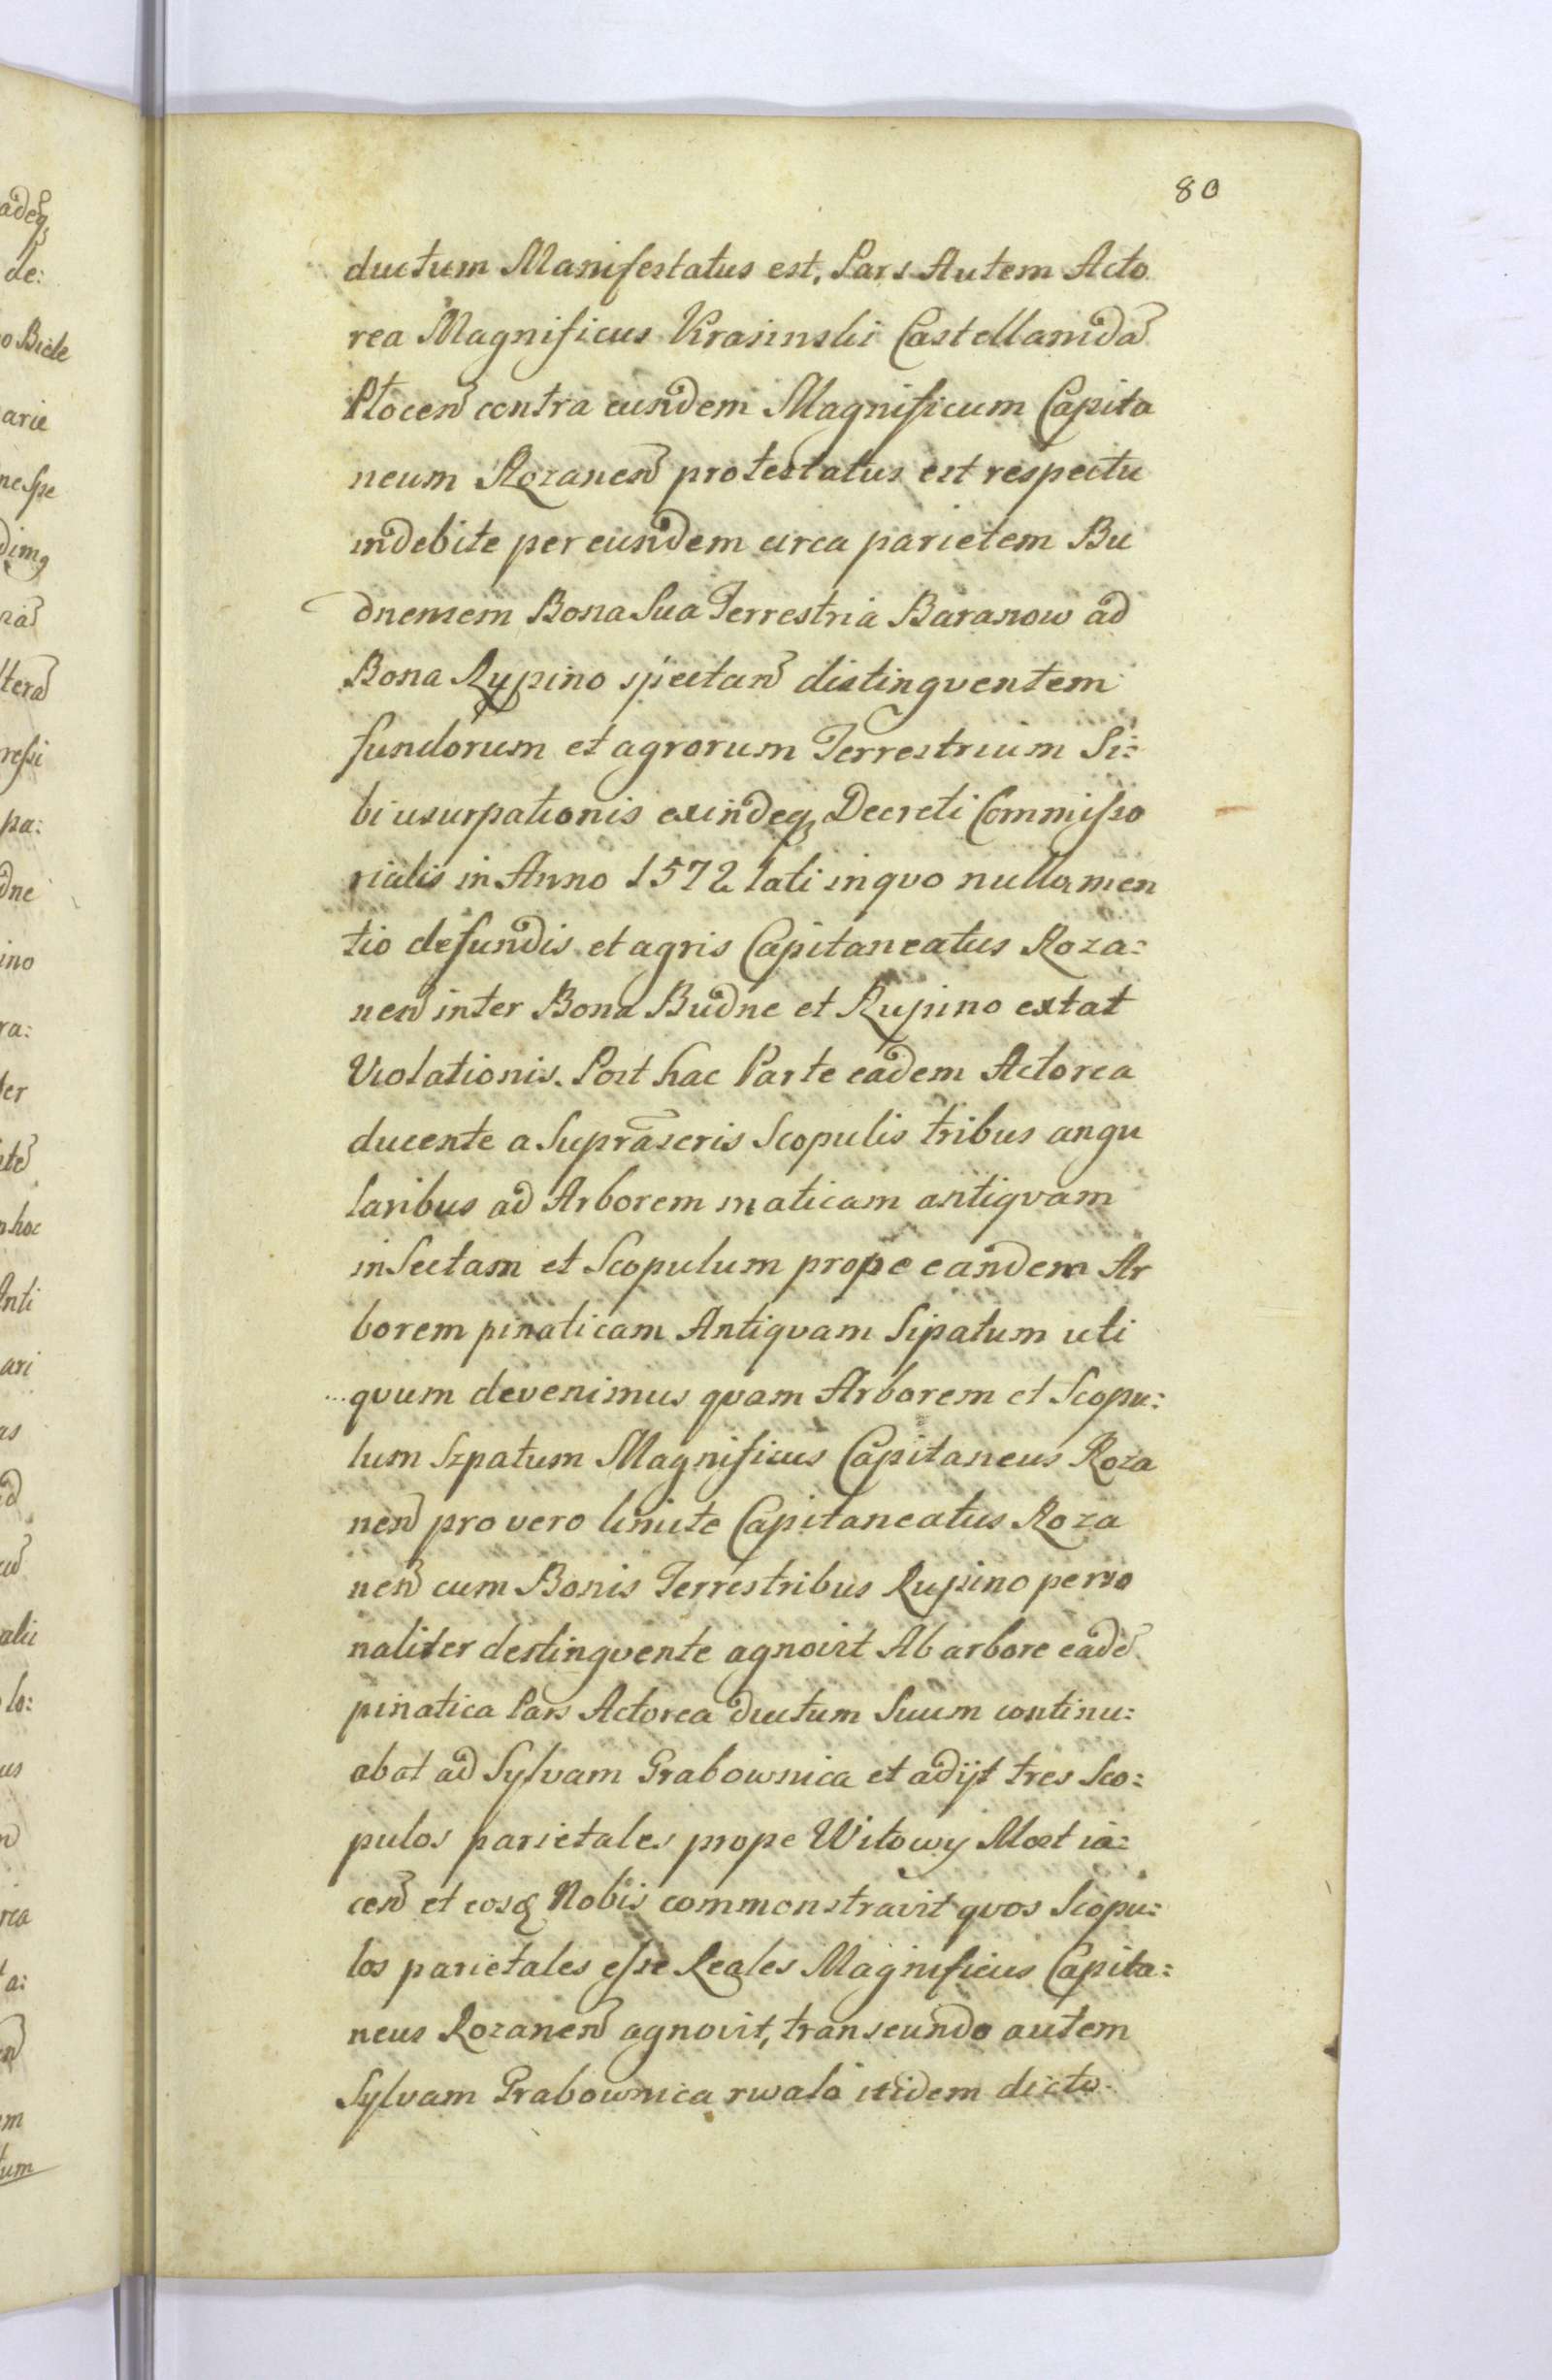 80
ductum Manifestatus est, Pars Autem Acto
rea Magnificus Krasinski Castellanidã
Płocen̄ contra eundem Magnificum Capita
neum Rozanen̄ protestatus est respectu
indebite per eundem circa parietem Bu
dnensem Bona Sua Terrestria Baranow ad
Bona Rupino spectan̄ distingventem
fundorum et agrorum Terrestrium Si:
bi usurpationis exindeq Decreti Commisso
rialis in Anno 1572 lati in qvo nulla men
tio de fundis et agris Capitaneatus Roza:
nen̄ inter Bona Budne et Rupino extat
Violationis. Post hac Parte eadem Actorea
ducente a Suprãscris Scopulis tribus angu
laribus ad Arborem maticam antiqvam
inSectam et Scopulum prope eandem Ar
borem pinaticam Antiqvam Sipatum uti
...qvum devenimus qvam Arborem et Scopu:
lum Szpatum Magnificus Capitaneus Roza
nen̄ pro vero limite Capitaneatus Roza
nen̄ cum Bonis Terrestribus Rupino perso
naliter destingvente agnovit Ab arbore eadē
pinatica Pars Actorea ductum Suum continu:
abat ad Sylvam Grabownica et adijt tres Sco:
pulos parietales prope Witowy Most ia:
cen̄ et eosq Nobis commonstravit qvos Scopu:
los parietales esse Reales Magnificus Capita:
neus Rozanen̄ agnovit, transeundo autem
Sylvam Grabownica rwała itidem dicto
adeq
de:
o Biele
arie
ne Spe
dimq
nã
terã
ressi
pa:
dne
ino
ra:
der
ntē
nhoc
Anti
ari
as
ad
alii
lo:
us
rea
ta:
m
tum